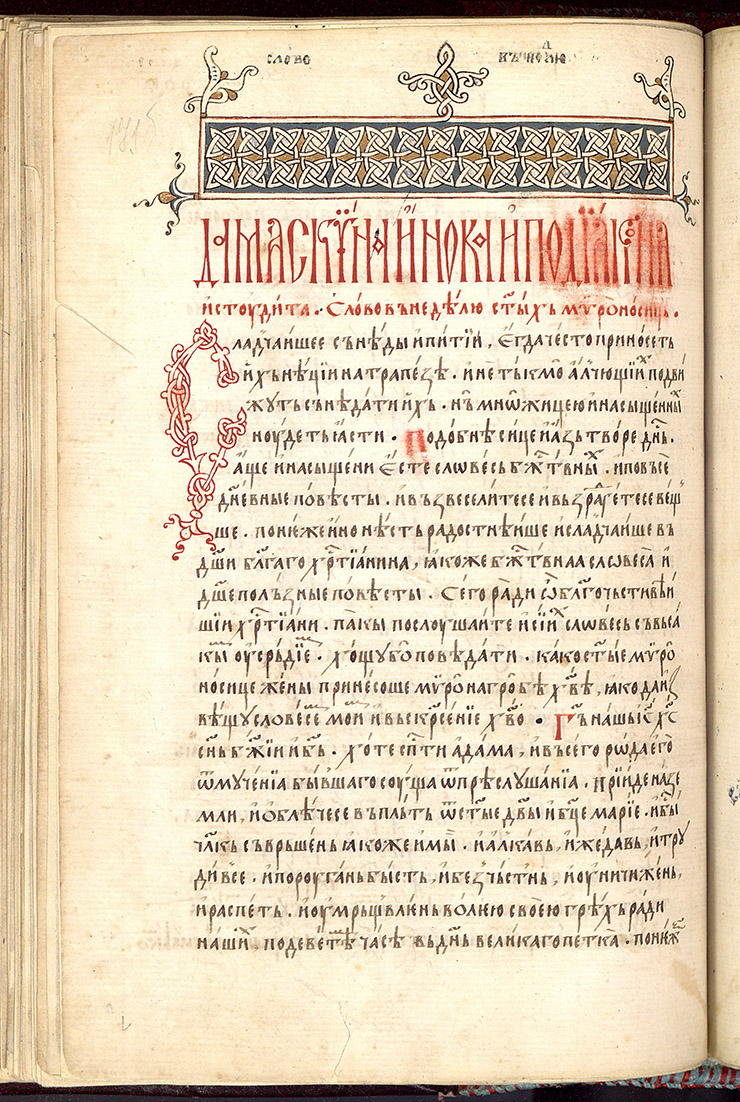 слово
въ не҃ⷣлю
Дамаскина инока и подїакѡна
и стоудита · Слово въ недѣлю ст҃ыхь мѵроносиць ·
Сладчаишее сънѣды и питїи, егда чѐсто приносеть
ихь нѣцїи на трапезѣ · и не тькмо алчющїиⷯ подви
жуть сънѣдати ихь · нь множицею и насыщенныⷯ
ноудеть ꙗсти · Подобнѣ сице и азь твору дн҃ь ·
аще и насыщени есте словесь бж҃ⷭтвныⷯ · и по въсе
дневные повѣсты · и възвеселитесе и възраⷣуетесе вещ
ше · понюже ино нѣсть радостнѣише и сладчаише въ
дш҃и бл҃гаго хрⷭ҇тїанина, ꙗкоже бжⷭ҇твнаа словеса и
дш҃еполъзные повѣсты · Сего ради ѡ бл҃гочьстивѣи
шїи хрⷭ҇тїани · пакы послоушаите и сїиⷯ словесь съ вса
кыⷨ оусрьдїеⷨ · хощу бо поведати · како ст҃ые мѵро
носице жены принесоше мѵро на гробѣ хв҃ѣ, ꙗко да из
вѣщу словесеⷨ моиⷨ и въскрⷭ҇сенїе хв҃о · Гь҃ нашь іс҃ хс҃
сн҃ь бж҃їи и бь҃ · хоте сп҃сти адама, и въсего рода его
ѿ мученїа бывшаго соуща ѿ прѣслушанїа · прїиде на зе
мли, и облѣчесе въ плъть ѿ ст҃ые дв҃ы и бц҃е марїе · и быⷭ҇
чл҃кь съврьшень ꙗкоже и мы · и алкавь, и жедавь, и тру
дивсе · и пороугань бысть, и безчьстнь, и оуничижень,
и распеть · и оумрьщвлень волею своею грѣхь ради
нашиⷯ · по деветѣⷨ часѣ вь дн҃ь великаго петка · понюже